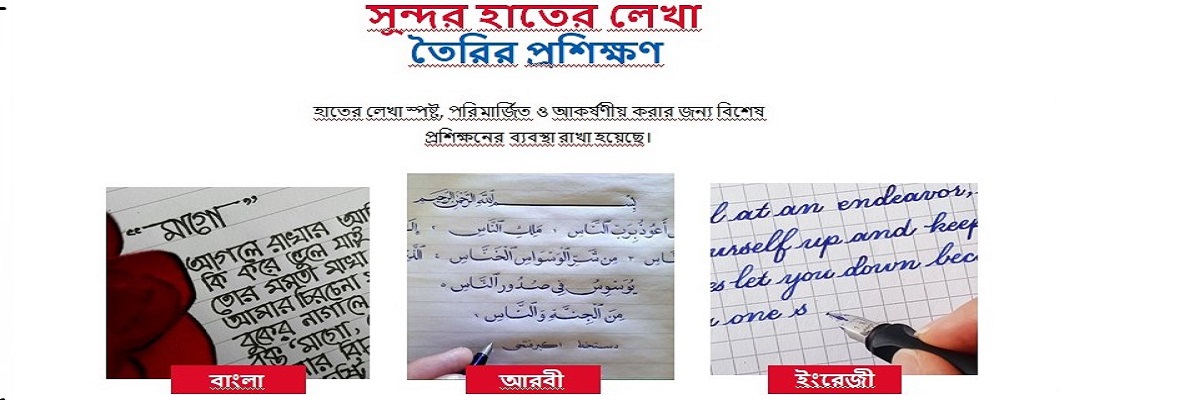 সুন্দর হাতের লেখা
তৈরির প্রশিক্ষণ
হাতের লেখা স্পষ্ট, পরিমার্জিত ও আকর্ষণীয় করার জন্য বিশেষ
প্রশিক্ষনের ব্যবস্থা রাখা হয়েছে।
“মাগো”
আগলে রাখার
কি করে ভুলে যাই
তোর মমতা মাখা
আমার চিরচেনা
বুকের
"মাগো,
বাংলা
بسم الله الرحمن الرحيم
أعوذ برب الناس ، ملك الناس ،
من شر الوسواس الخناس
يوسوس في صدور الناس
من الجنة والناس ،
আরবী
l at an endeavor,
urself up and keep
es let you down bec
one s
ইংরেজী